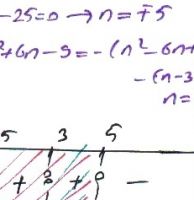 -25=0 → n=∓5
²+6n-9=-(n²-6n+
-(n-3
n=
5 3 5
+ 0 + 0 -